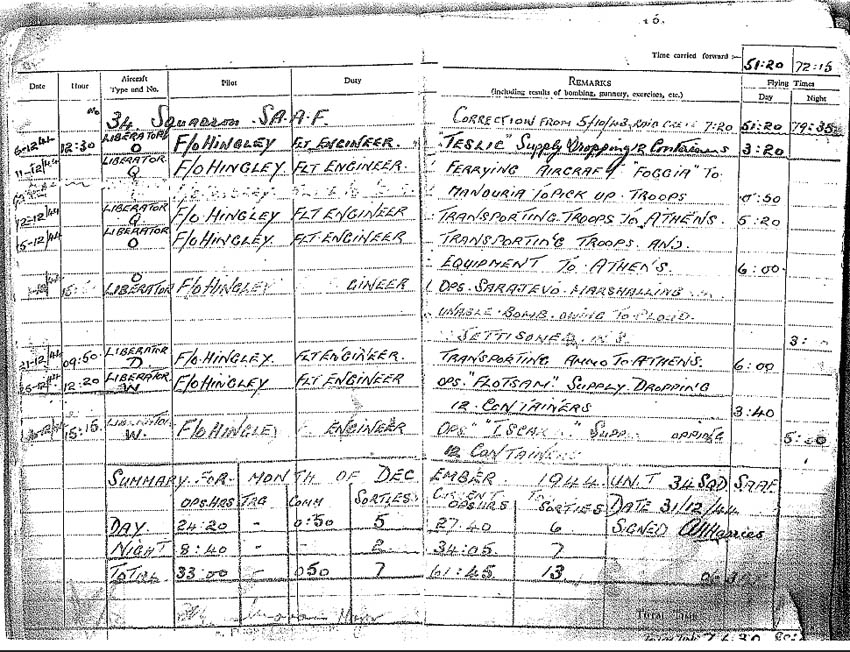 Time carried forward :— 51:20 72:15
Date Hour Aircraft Type and No. Pilot Duty REMARKS (including results of bombing, gunnery, exercises, etc.) Flying Times Day Night
34 Squadron S.A.A.F. CORRECTION FROM 5/10/43 7:20 51:20 79:35
12:30 LIBERATOR O F/O HINGLEY FLT ENGINEER. "TESLIC" Supply Dropping 12 Containers 3:20
11-12/44 LIBERATOR Q F/O HINGLEY FLT ENGINEER. FERRYING AIRCRAFT "FOGGIA" TO
MANDURIA TO PICK UP TROOPS 0:50
12-12/44 LIBERATOR Q F/O HINGLEY FLT ENGINEER TRANSPORTING TROOPS TO ATHENS 5:20
15-12/44 LIBERATOR O F/O HINGLEY FLT ENGINEER TRANSPORTING TROOPS AND
EQUIPMENT TO ATHENS. 6:00
O LIBERATOR F/O HINGLEY OPS. SARAJEVO MARSHALLING
UNABLE BOMB OWING TO
JETTISONED IN
21-12/44 09:50 LIBERATOR D. F/O HINGLEY. FLT ENGINEER. TRANSPORTING AMMO TO ATHENS. 6:00
12:20 LIBERATOR W F/O HINGLEY FLT ENGINEER OPS. "FLOTSAM" SUPPLY DROPPING
12 CONTAINERS 3:40
15:15 LIBERATOR W. F/O HINGLEY ENGINEER OPS
12 CONTAINERS
SUMMARY FOR MONTH OF DECEMBER 1944 UNIT 34 SQD SAAF
OPS HRS TRG COMM SORTIES OPS HRS SORTIES DATE 31/12/44
DAY 24:20 - 0:50 5 27:40 6 SIGNED
NIGHT 8:40 - - 2 34:05 7
TOTAL 33:00 - 0:50 7 61:45 13
Total Time